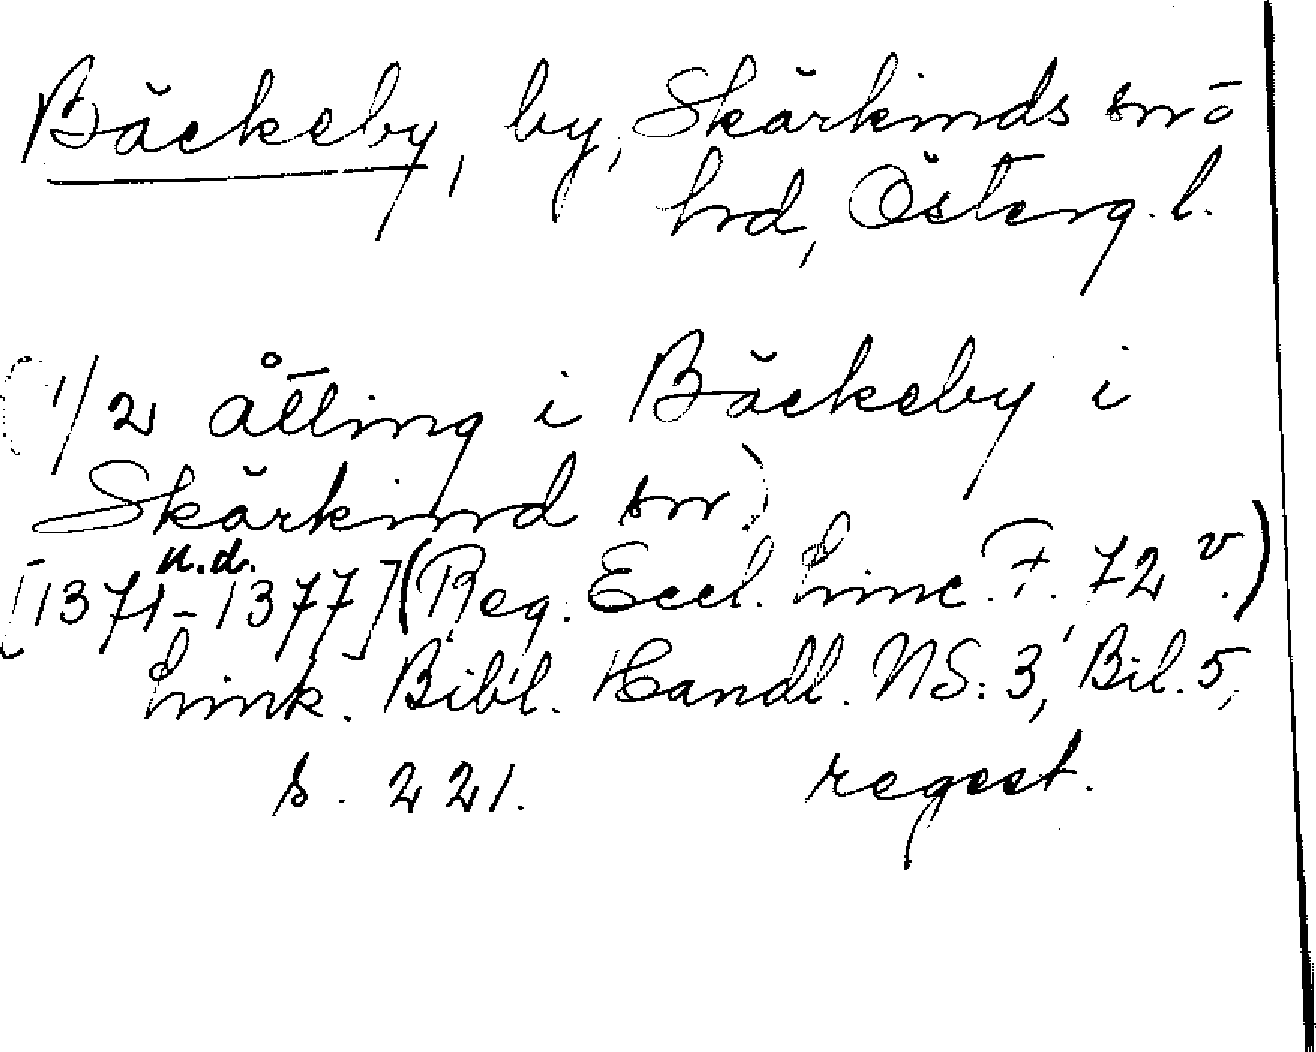 Bäckeby, by, Skärkinds sn o
hrd, Österg. l.
(1/2 åtting i Bäckeby i
Skärkind sn)
n.d.
[1371-1377] (Reg. Eccl. Linc. F. 72 v.)
Link. Bibl. Handl. NS: 3, Bil. 5,
s. 221. regest.